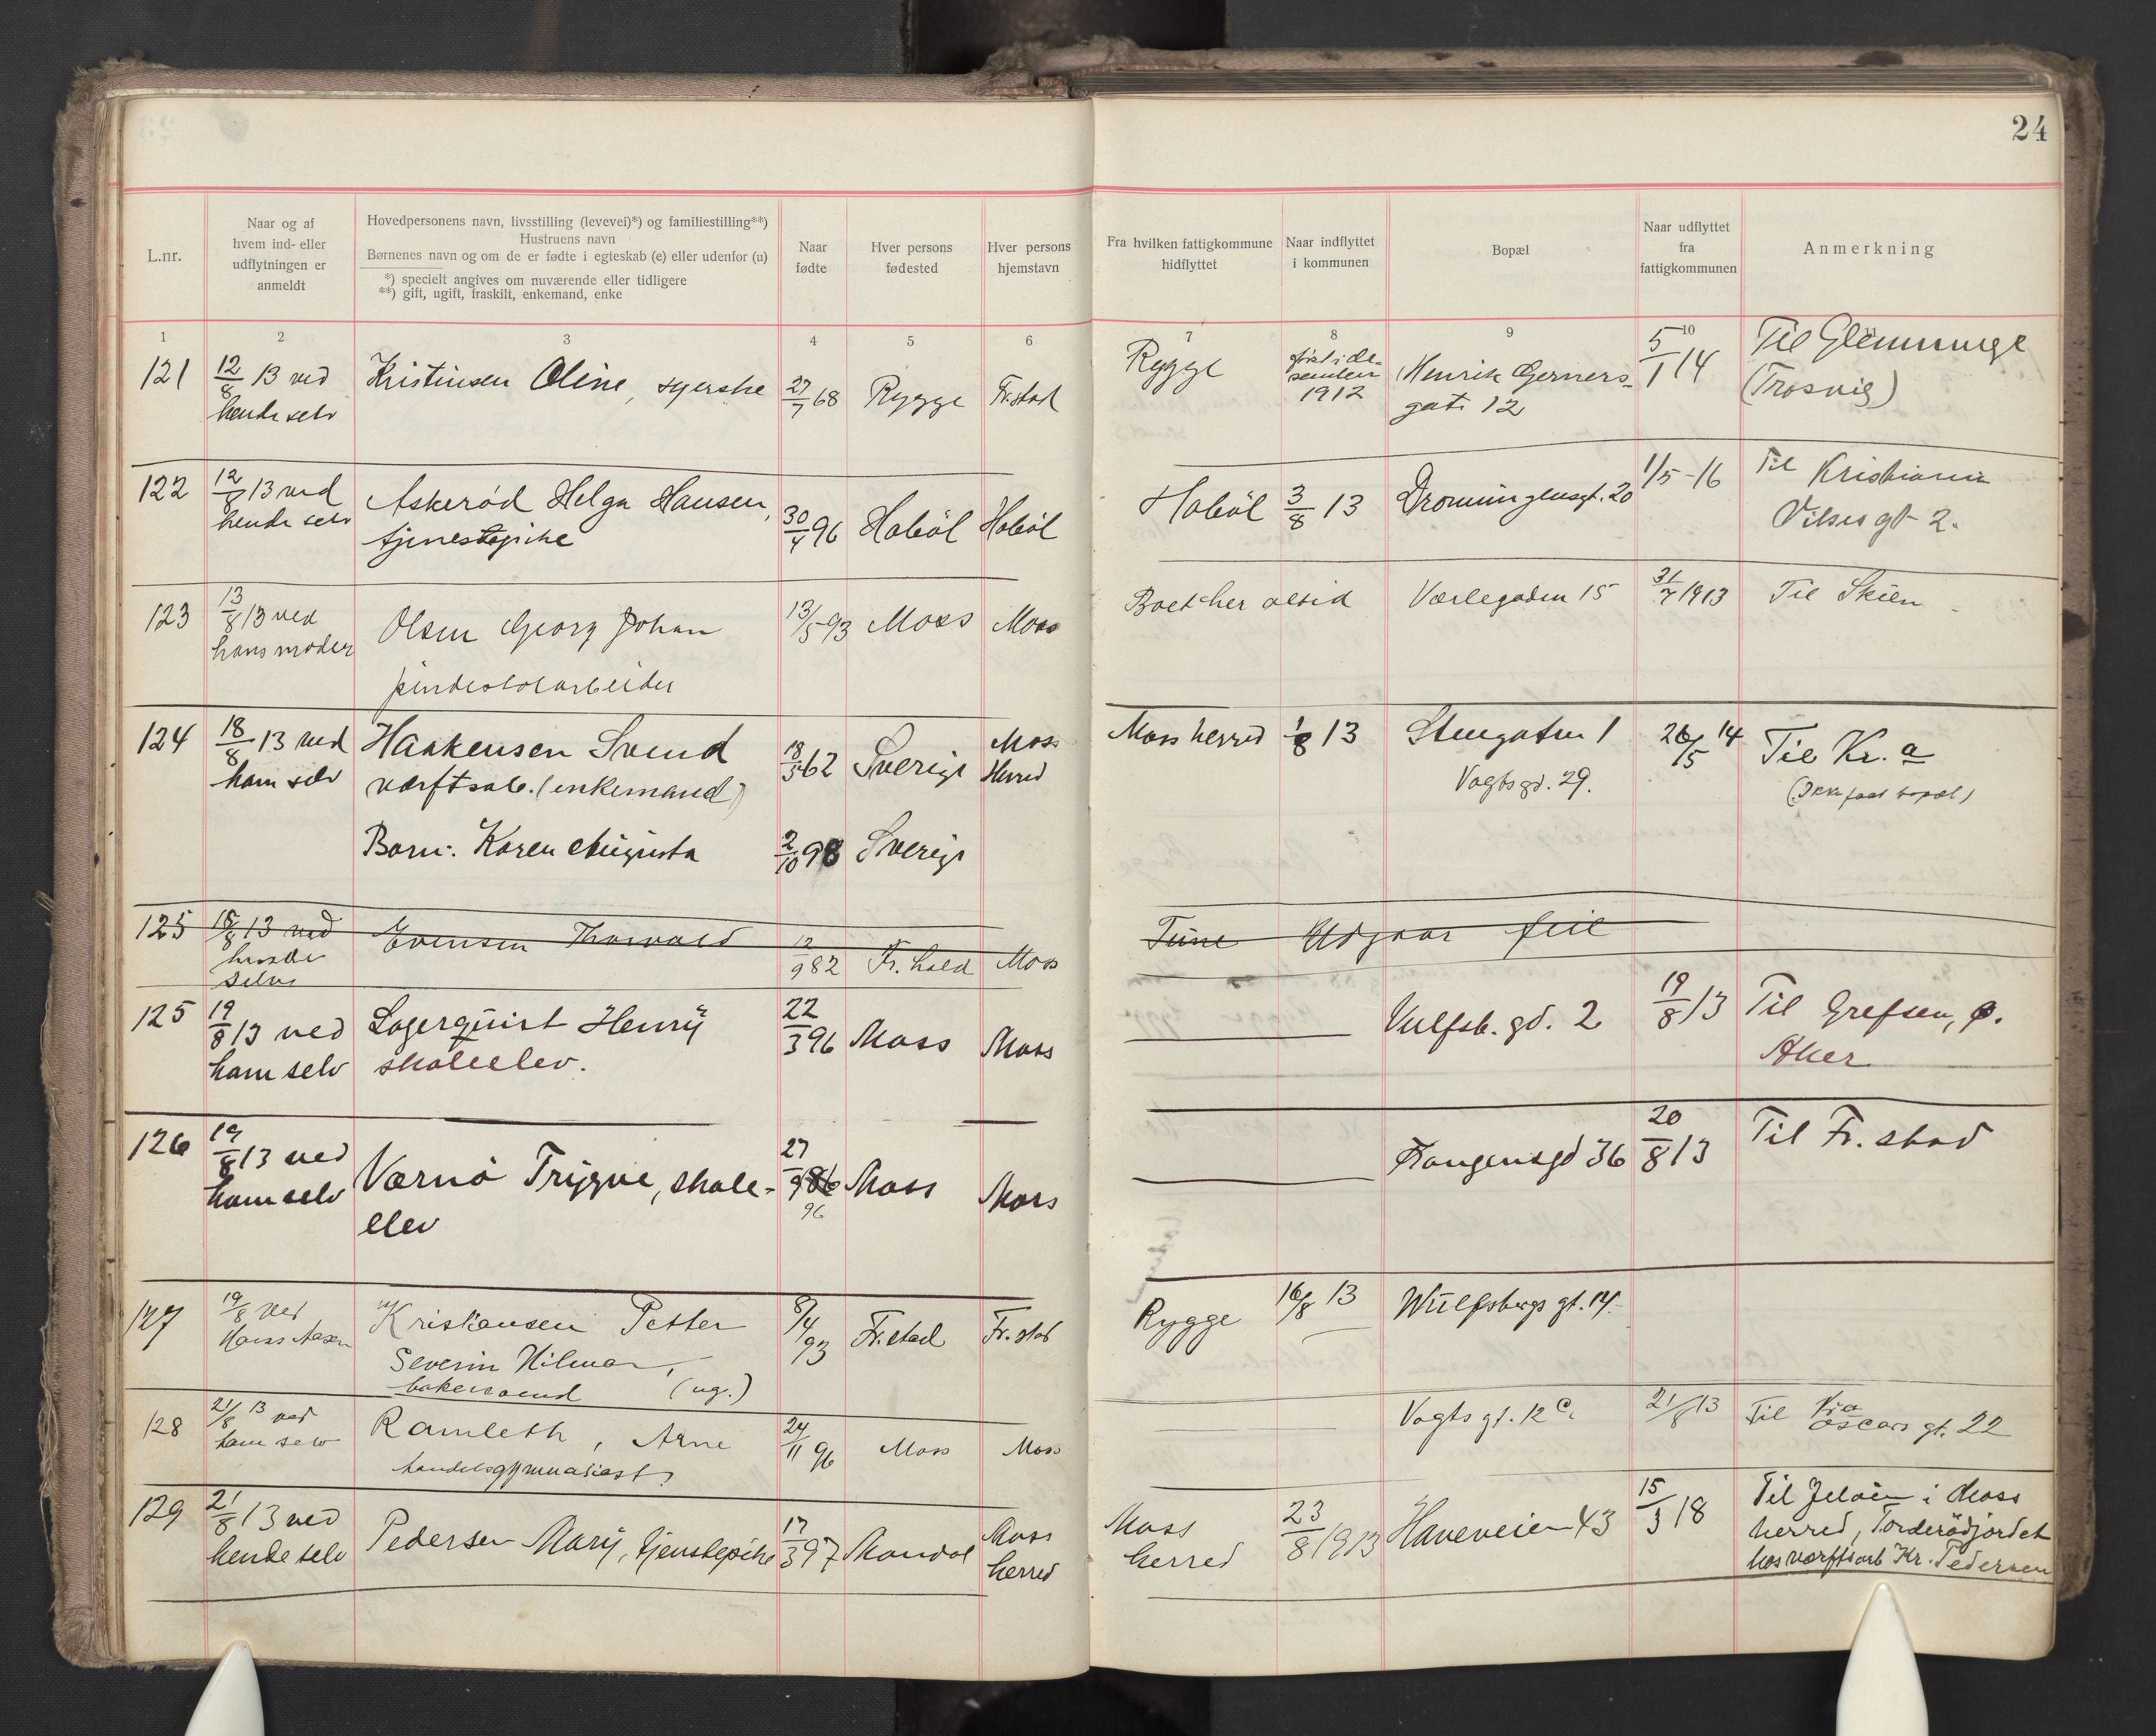 24
L.nr.
Naar og af
hvem ind- eller
udflytningen er
anmeldt
Hovedpersonens navn, livsstilling (levevei)*) og familiestilling**)
Hustruens navn
Børnenes navn og om de er fødte i egteskab (e) eller udenfor (u)
*) specielt angives om nuværende eller tidligere
**) gift, ugift, fraskilt, enkemand, enke
Naar
fødte
Hver persons
fødested
Hver persons
hjemstavn
Fra hvilken fattigkommune
hidflyttet
Naar indflyttet
i kommunen
Bopæl
Naar udflyttet
fra
fattigkommunen
Anmerkning
1 2 3 4 5 6 7 8 9 10
121 12/8 13 ved Kristinsen Oline, syerske 27/7 68 Rygge Fr.stad Rygge 1912 Henrik Gerners- 5/1 14 Til Glemminge
hende selv gate 12 (Trosvig)
122 12/8 13 ved Askerød Helga Hansen, 30/4 96 Haböl Haböl Haböl 3/8 13 Dronningensgt. 20 1/5-16 Til Kristiania
hende selv tjenestepike gt 2.
123 13/8 13 ved Olsen Georg Johan 13/5 93 Moss Moss Boet her altid Værlegaden 15 31/7 1913 Til Skien
hans moder
124 18/8 13 ved Haakensen Svend 18/5 62 Sverige Moss Herred Moss herred 1/8 13 Stengaten 1 26/5 14 Til Kr.a
ham selv værftsarb. (enkemand) Vogtsgd. 29. (Ikke fast bopæl)
Barn: Karen Augusta 2/10 98 Sverige
125 15/8 13 ved Evensen Thorvald 12/9 82 Fr.hald Moss Tune Udgaar feil
selv
125 19/8 13 ved Lagerquist Henry 22/3 96 Moss Moss Vulfsb. gd. 2 19/8 13 Til Grefsen, Ø.
ham selv skoleelev. Aker
126 19/8 13 ved Værnö Trygve, skole- 27/9 86 Moss Moss Kongensgd 36 20/8 13 Til Fr.stad
ham selv elev 96
127 19/8 ved Kristiansen Petter 8/4 93 Fr.stad Fr.stad Rygge 16/8 13 Wülfsbergs gt. 14.
Severin Hilmar,
bakersvend (ug.)
128 21/8 13 ved Ramleth, Arne 24/11 96 Moss Moss Vogts gt. 12 c. 21/8 13 Til Kr.a
ham selv handelsgymnasiast, Oscars gt. 22
129 21/8 13 ved Pedersen Mary, tjenstepike 17/3 97 Mandal Moss Moss 23/8 1913 Haveveien 43 15/3 18 Til Jeløen i Moss
hende selv herred herred herred, Torderødjordet
hos værftsarb Kr. Pedersen